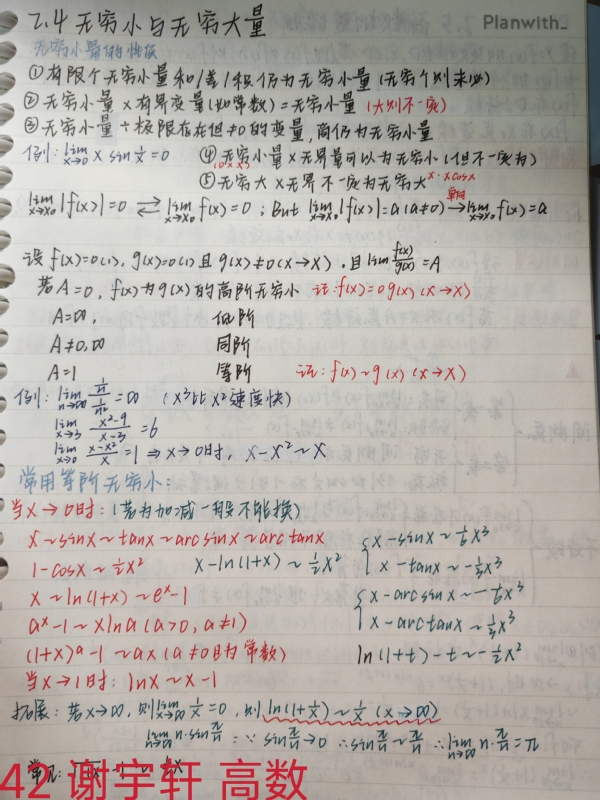 2.4 无穷小与无穷大量
Planwith_
无穷小量的性质
①有限个无穷小量和/差/积仍为无穷小量(无穷个则未必)
②无穷小量×有界变量(如常数)=无穷小量(大则不一定)
③无穷小量÷极限存在但≠0的变量,商仍为无穷小量
例: lim x→0 x sin 1/x = 0 ④无穷小量×无界量可以为无穷小(但不一定为)
⑤无穷大×无界不一定为无穷大 x·xcosx
lim x→x₀ |f(x)|=0 ⇌ lim x→x₀ f(x)=0 ; But lim x→x₀ |f(x)|=a(a≠0) → lim x→x₀ f(x)=a
设f(x)=o(1), g(x)=o(1)且g(x)≠0(x→X), 且lim f(x)/g(x)=A
若A=0, f(x)为g(x)的高阶无穷小 记:f(x)=o g(x) (x→X)
A=∞ 低阶
A≠0,∞ 同阶
A=1 等阶 记:f(x)~g(x) (x→X)
lim x→3 x²-9/x-3 = 6
lim x-x²/x = 1 ⇒ x→0时, x-x²~x
常用等阶无穷小:
当x→0时:(若为加减一般不能换)
x~sinx~tanx~arcsinx~arctanx x-sinx~1/6x³
1-cosx~1/2x² x-ln(1+x)~1/2x² x-tanx~-1/3x³
x~ln(1+x)~eˣ-1 x-arcsinx~-1/6x³
aˣ-1~xlna(a>0,a≠1) x-arctanx~1/3x³
(1+x)ᵃ-1~ax(a≠0时为常数) ln(1+t)-t~-1/2x²
当x→1时: lnx~x-1
拓展:若x→∞, 则lim x→∞ 1/x=0, 则ln(1+1/x)~1/x (x→∞)
lim n→∞ n·sin π/n = ∵sin π/n→0 ∴sin π/n~π/n ∴lim n→∞ n·π/n=π
42 谢宇轩 高数